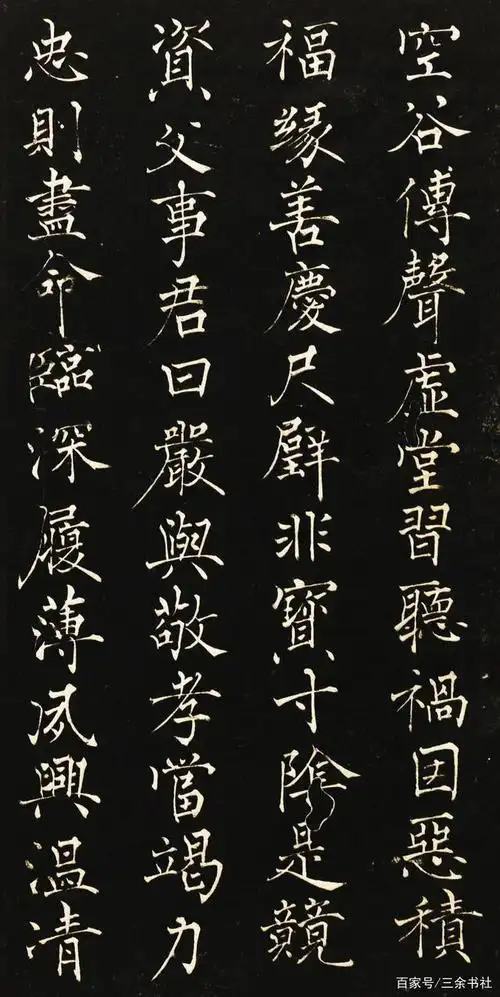 空谷傳聲虛堂習聽禍因惡積
福緣善慶尺璧非寶寸陰是競
資父事君曰嚴與敬孝當竭力
忠則盡命臨深履薄夙興温凊
百家号/三余书社